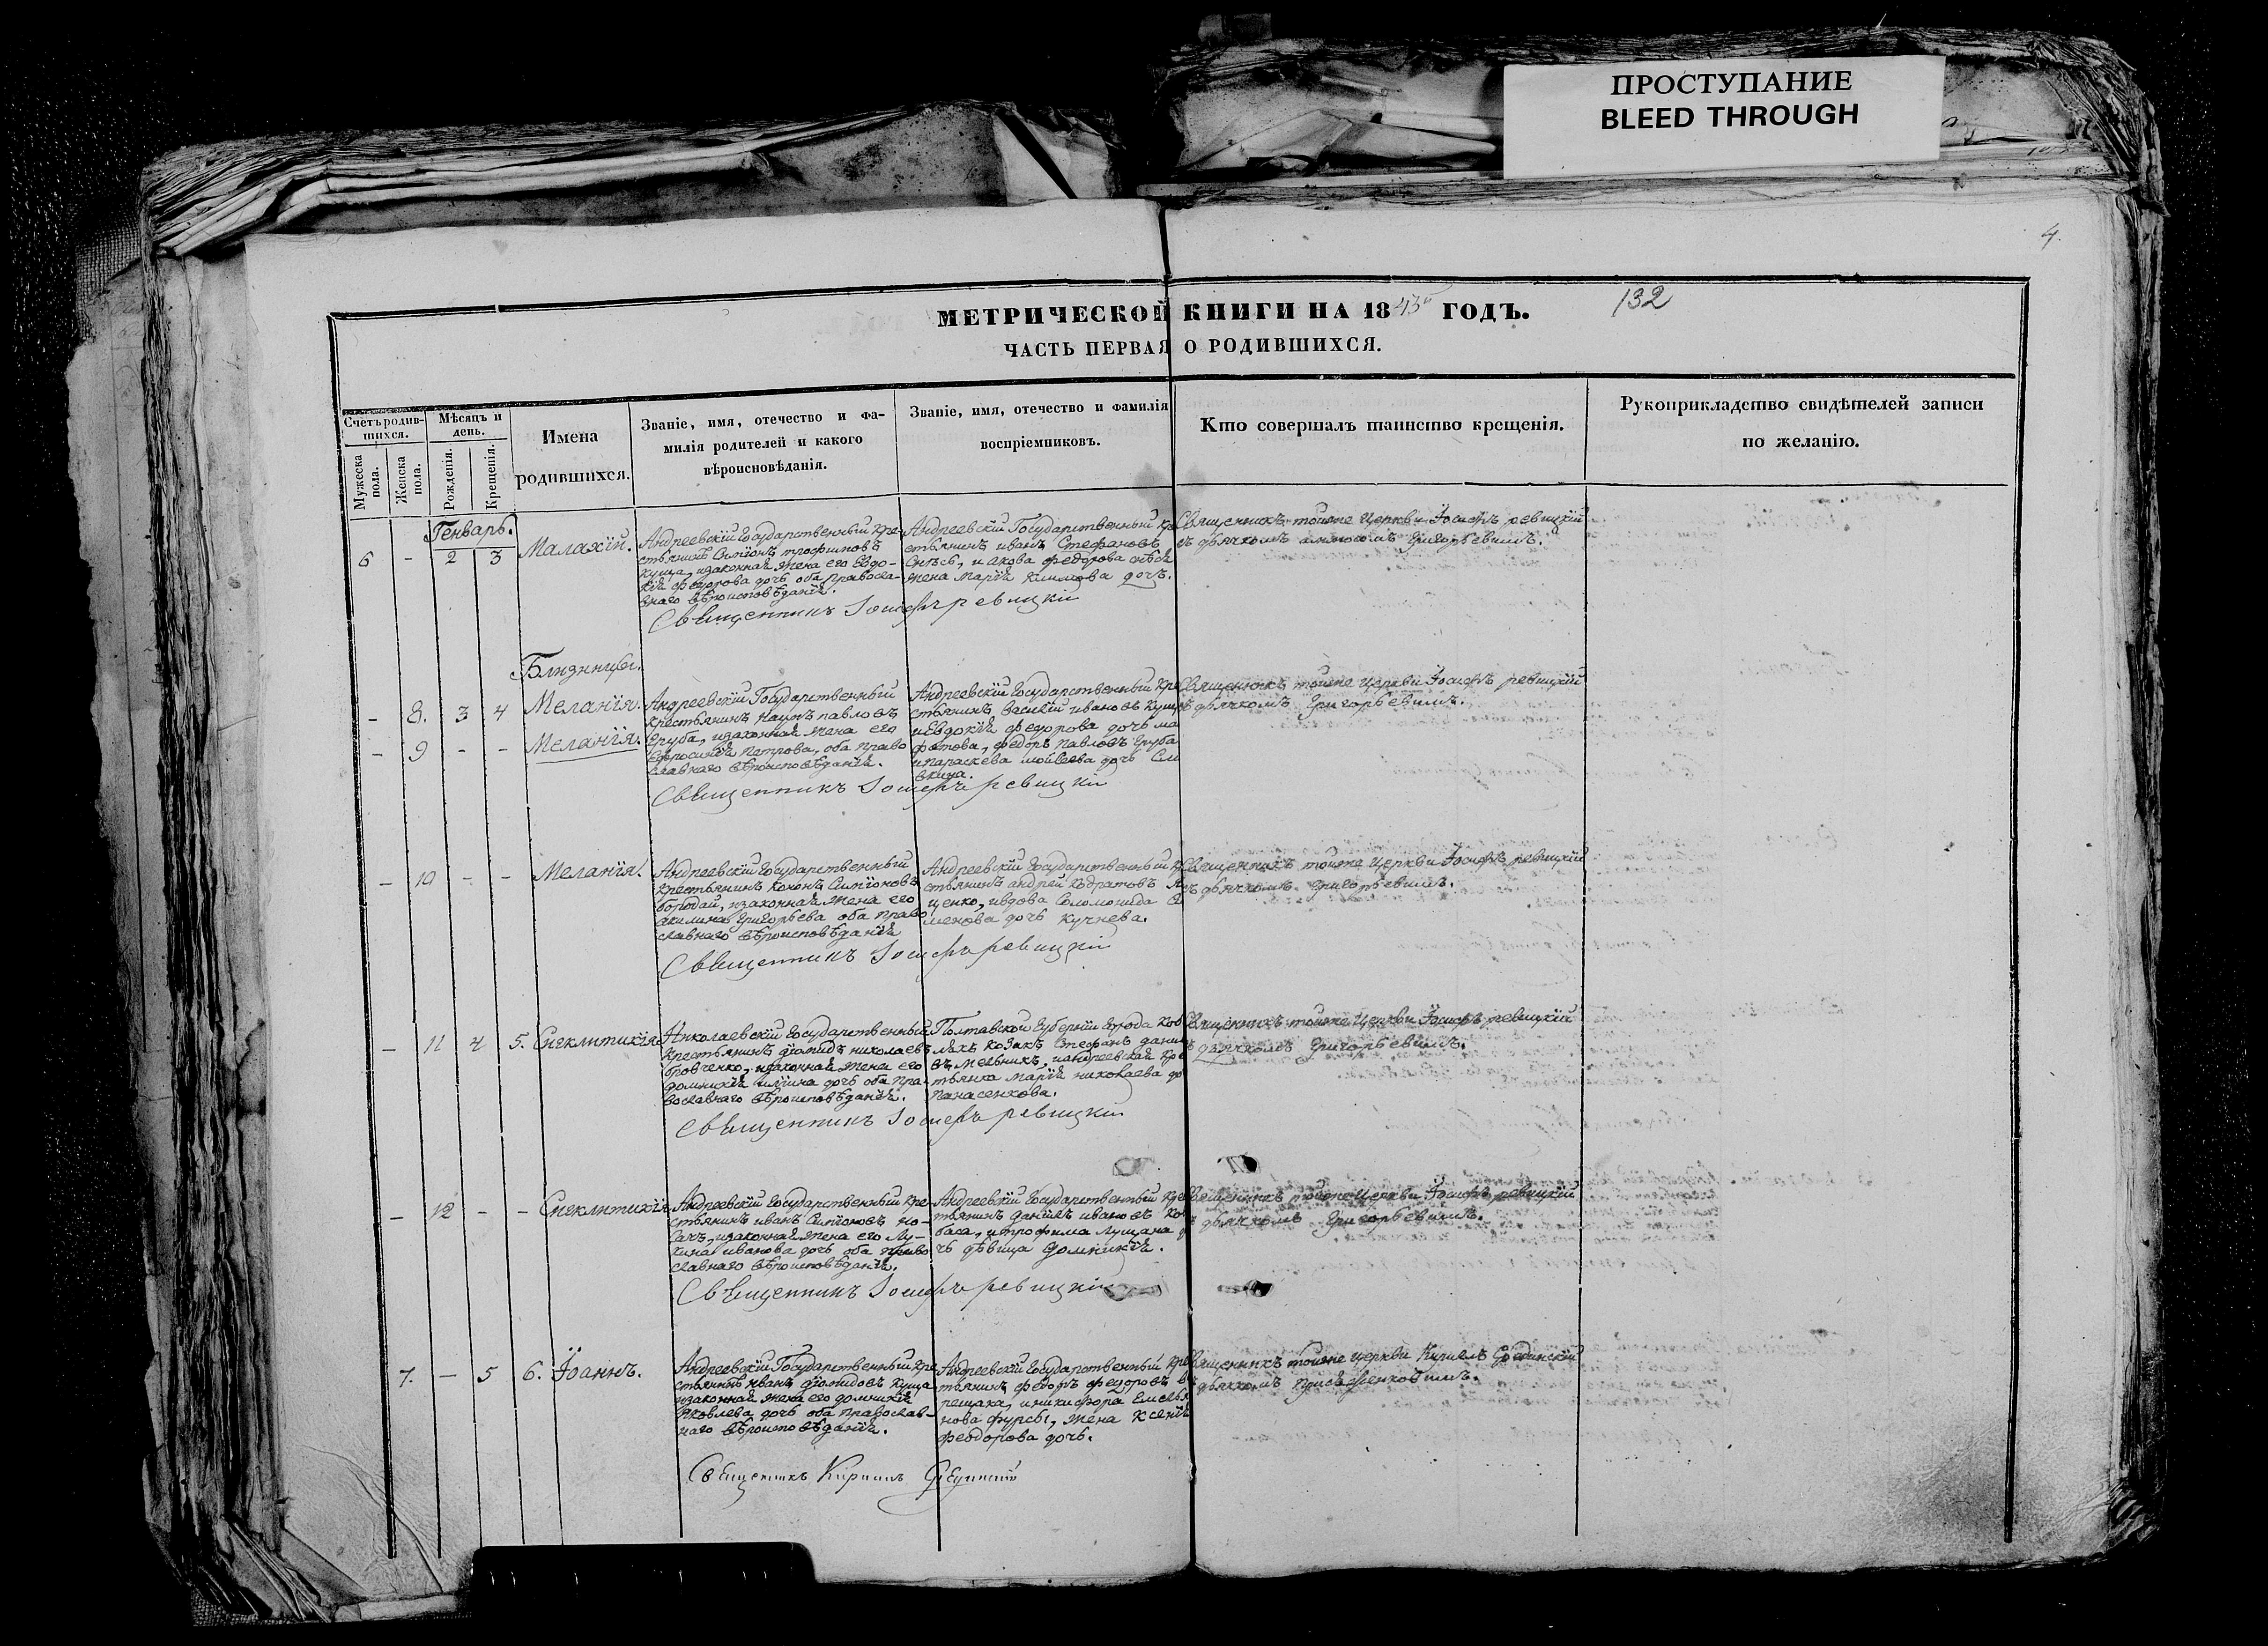 ПРОСТУПАНИЕ
BLEED THROUGH
4.
МЕТРИЧЕСКОЙ КНИГИ НА 1843 ГОДЪ.
132
ЧАСТЬ ПЕРВАЯ О РОДИВШИХСЯ.
Счетъ родив-
шихся.
Мужеска пола.
Женска пола.
Мѣсяцъ и
день.
Рожденія.
Крещенія.
Имена
родившихся.
Званіе, имя, отечество и фа-
милія родителей и какого
вѣроисповѣданія.
Званіе, имя, отечество и фамилія
воспріемниковъ.
Кто совершалъ таинство крещенія.
Рукоприкладство свидѣтелей записи
по желанію.
Генварь.
6 - 2 3 Малахій.
Андреевскій Государственный кре-
стьянинъ Симіонъ трофимовъ
куща, изаконная жена его Евдо-
кія федорова дочь оба правосла-
внаго вѣроисповѣданія.
Андреевскій Государственный
стьянинъ иванъ Стефановъ
жена марія климова дочь.
Священникъ тойже Церкви Іосифъ ревицкій
съ дьячкомъ Григорьевимъ.
Священникъ Іосифъ ревицкій
Близницы.
- 8. 3 4 Меланія.
- 9 - - Меланія.
Андреевскій Государственный
крестьянинъ Наумъ павловъ
Груба, изаконная жена его
Ефросинія петрова, оба право
славнаго вѣроисповѣданія.
Андреевскій Государственный кре
стьянинъ василій ивановъ
иевдокія федорова дочь
федоръ павловъ Груба
ипараскева дочь
Священникъ тойже Церкви Іосифъ ревицкій
дьячкомъ Григорьевимъ.
Священникъ Іосифъ ревицкій
- 10 - - Меланія.
Андреевскій Государственный
крестьянинъ кононъ Симіоновъ
бородай, изаконная жена его
акилина Григорьева оба право
славнаго вѣроисповѣданія
Андреевскій Государственный
стьянинъ андрей кодратовъ
ценко, ивдова Соломонида
дочь кучнева.
Священникъ тойже Церкви Іосифъ ревицкій
съ дьячкомъ Григорьевимъ.
Священникъ Іосифъ ревицкій
- 11 4 5. Синклитикія
Николаевскій Государственный
крестьянинъ діомидъ николаевъ
бровченко, изаконная жена его
домникія иліина дочь оба пра-
вославнаго вѣроисповѣданія.
Полтавской Губерніи города Коб
лякъ козакъ Стефанъ дани
въ мельникъ, иандреевская кре
стьянка марія николаева до
панасенкова.
Священникъ тойже Церкви Іосифъ ревицкій
дьячкомъ Григорьевимъ.
Священникъ Іосифъ ревицкій
- 12 - - Синклитикія
Андреевскій Государственный кре-
стьянинъ иванъ Симіоновъ но-
сачъ, изаконная жена его Лу-
кина иванова дочь оба право
славнаго вѣроисповѣданія.
Андреевскій Государственный кре
тянинъ даніилъ ивановъ
баса, итрофима Лущана
чь дѣвица домникія.
Священникъ тойже Церкви Іосифъ ревицкій
дьячкомъ Григорьевимъ.
Священникъ Іосифъ ревицкій
7. - 5 6. Іоаннъ.
Андреевскій Государственный кре
стьянинъ иванъ діомидовъ куща
изаконная жена его домникія
Яковлева дочь оба православ-
наго вѣроисповѣданія.
Андреевскій Государственный кре
тянинъ федоръ федоровъ
рещака, иникифора Емелья
нова фурсы, жена ксенія
феодорова дочь.
Священникъ тойже церкви Кирилъ
дьячкомъ
Священникъ Кириллъ